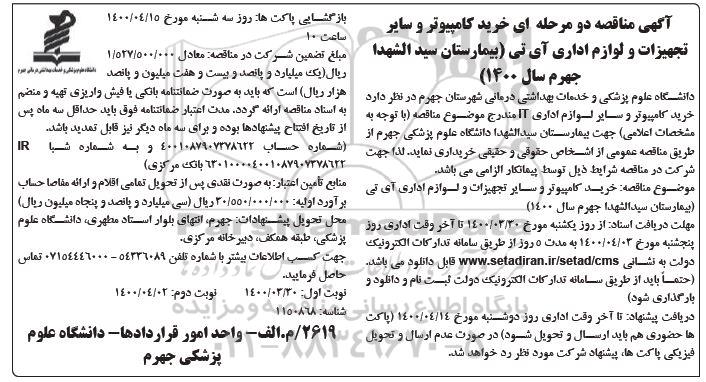 آگهی مناقصه دو مرحله ای خرید کامپیوتر و سایر
تجهیزات و لوازم اداری آی تی (بیمارستان سید الشهدا
جهرم سال ۱۴۰۰)
دانشگاه علوم پزشکی و خدمات بهداشتی درمانی شهرستان جهرم در نظر دارد
خرید کامپیوتر و سایر لوازم اداری IT مندرج موضوع مناقصه (با توجه به
مشخصات اعلامی) جهت بیمارستان سیدالشهدا دانشگاه علوم پزشکی جهرم از
طریق مناقصه عمومی از اشخاص حقوقی و حقیقی خریداری نماید. لذا جهت
شرکت در مناقصه شرایط ذیل توسط پیمانکار الزامی می باشد.
موضوع مناقصه: خرید کامپیوتر و سایر تجهیزات و لوازم اداری آی تی
(بیمارستان سیدالشهدا جهرم سال ۱۴۰۰)
مهلت دریافت اسناد: از روز یکشنبه مورخ ۱۴۰۰/۰۳/۳۰ تا آخر وقت اداری روز
پنجشنبه مورخ ۱۴۰۰/۰۴/۰۳ به مدت ۵ روز از طریق سامانه تدارکات الکترونیک
دولت به نشانی www.setadiran.ir/setad/cms قابل دانلود می باشد.
(حتماً باید از طریق سامانه تدارکات الکترونیک دولت ثبت نام و دانلود و
بارگذاری شود)
دریافت پیشنهاد: تا آخر وقت اداری روز دوشنبه مورخ ۱۴۰۰/۰۴/۱۴ (پاکت
ها حضوری هم باید ارسال و تحویل شود) در صورت عدم ارسال و تحویل
فیزیکی پاکت ها، پیشنهاد شرکت مورد نظر رد خواهد شد.
بازگشایی پاکت ها: روز سه شنبه مورخ ۱۴۰۰/۰۴/۱۵
ساعت ۱۰
مبلغ تضمین شرکت در مناقصه: معادل ۱/۵۲۷/۵۰۰/۰۰۰
ریال (یک میلیارد و پانصد و بیست و هفت میلیون و پانصد
هزار ریال) است که باید به صورت ضمانتنامه بانکی یا فیش واریزی تهیه و منضم
به اسناد مناقصه ارائه گردد. مدت اعتبار ضمانتنامه فوق باید حداقل سه ماه پس
از تاریخ افتتاح پیشنهادها بوده و برای سه ماه دیگر نیز قابل تمدید باشد.
(شماره حساب ۴۰۰۱۰۸۷۹۰۷۳۷۸۶۲۲ و به شماره شبا IR
۶۳۰۱۰۰۰۰۴۰۰۱۰۸۷۹۰۷۳۷۸۶۲۲ بانک مرکزی)
منابع تأمین اعتبار: به صورت نقدی پس از تحویل تمامی اقلام و ارائه مفاصا حساب
برآورد اولیه: ۳۰/۵۵۰/۰۰۰/۰۰۰ ریال (سی میلیارد و پانصد و پنجاه میلیون ریال)
محل تحویل پیشنهادات: جهرم، انتهای بلوار استاد مطهری، دانشگاه علوم
پزشکی، طبقه همکف، دبیرخانه مرکزی.
جهت کسب اطلاعات بیشتر با شماره تلفن ۵۴۳۳۶۰۸۹ - ۰۷۱۵۴۴۴۶۰۰۰ تماس
حاصل فرمایید.
نوبت اول: ۱۴۰۰/۰۳/۳۰ نوبت دوم: ۱۴۰۰/۰۴/۰۲
شناسه: ۱۱۵۰۸۶۸
۲۶۱۹/م.الف- واحد امور قراردادها- دانشگاه علوم
پزشکی جهرم